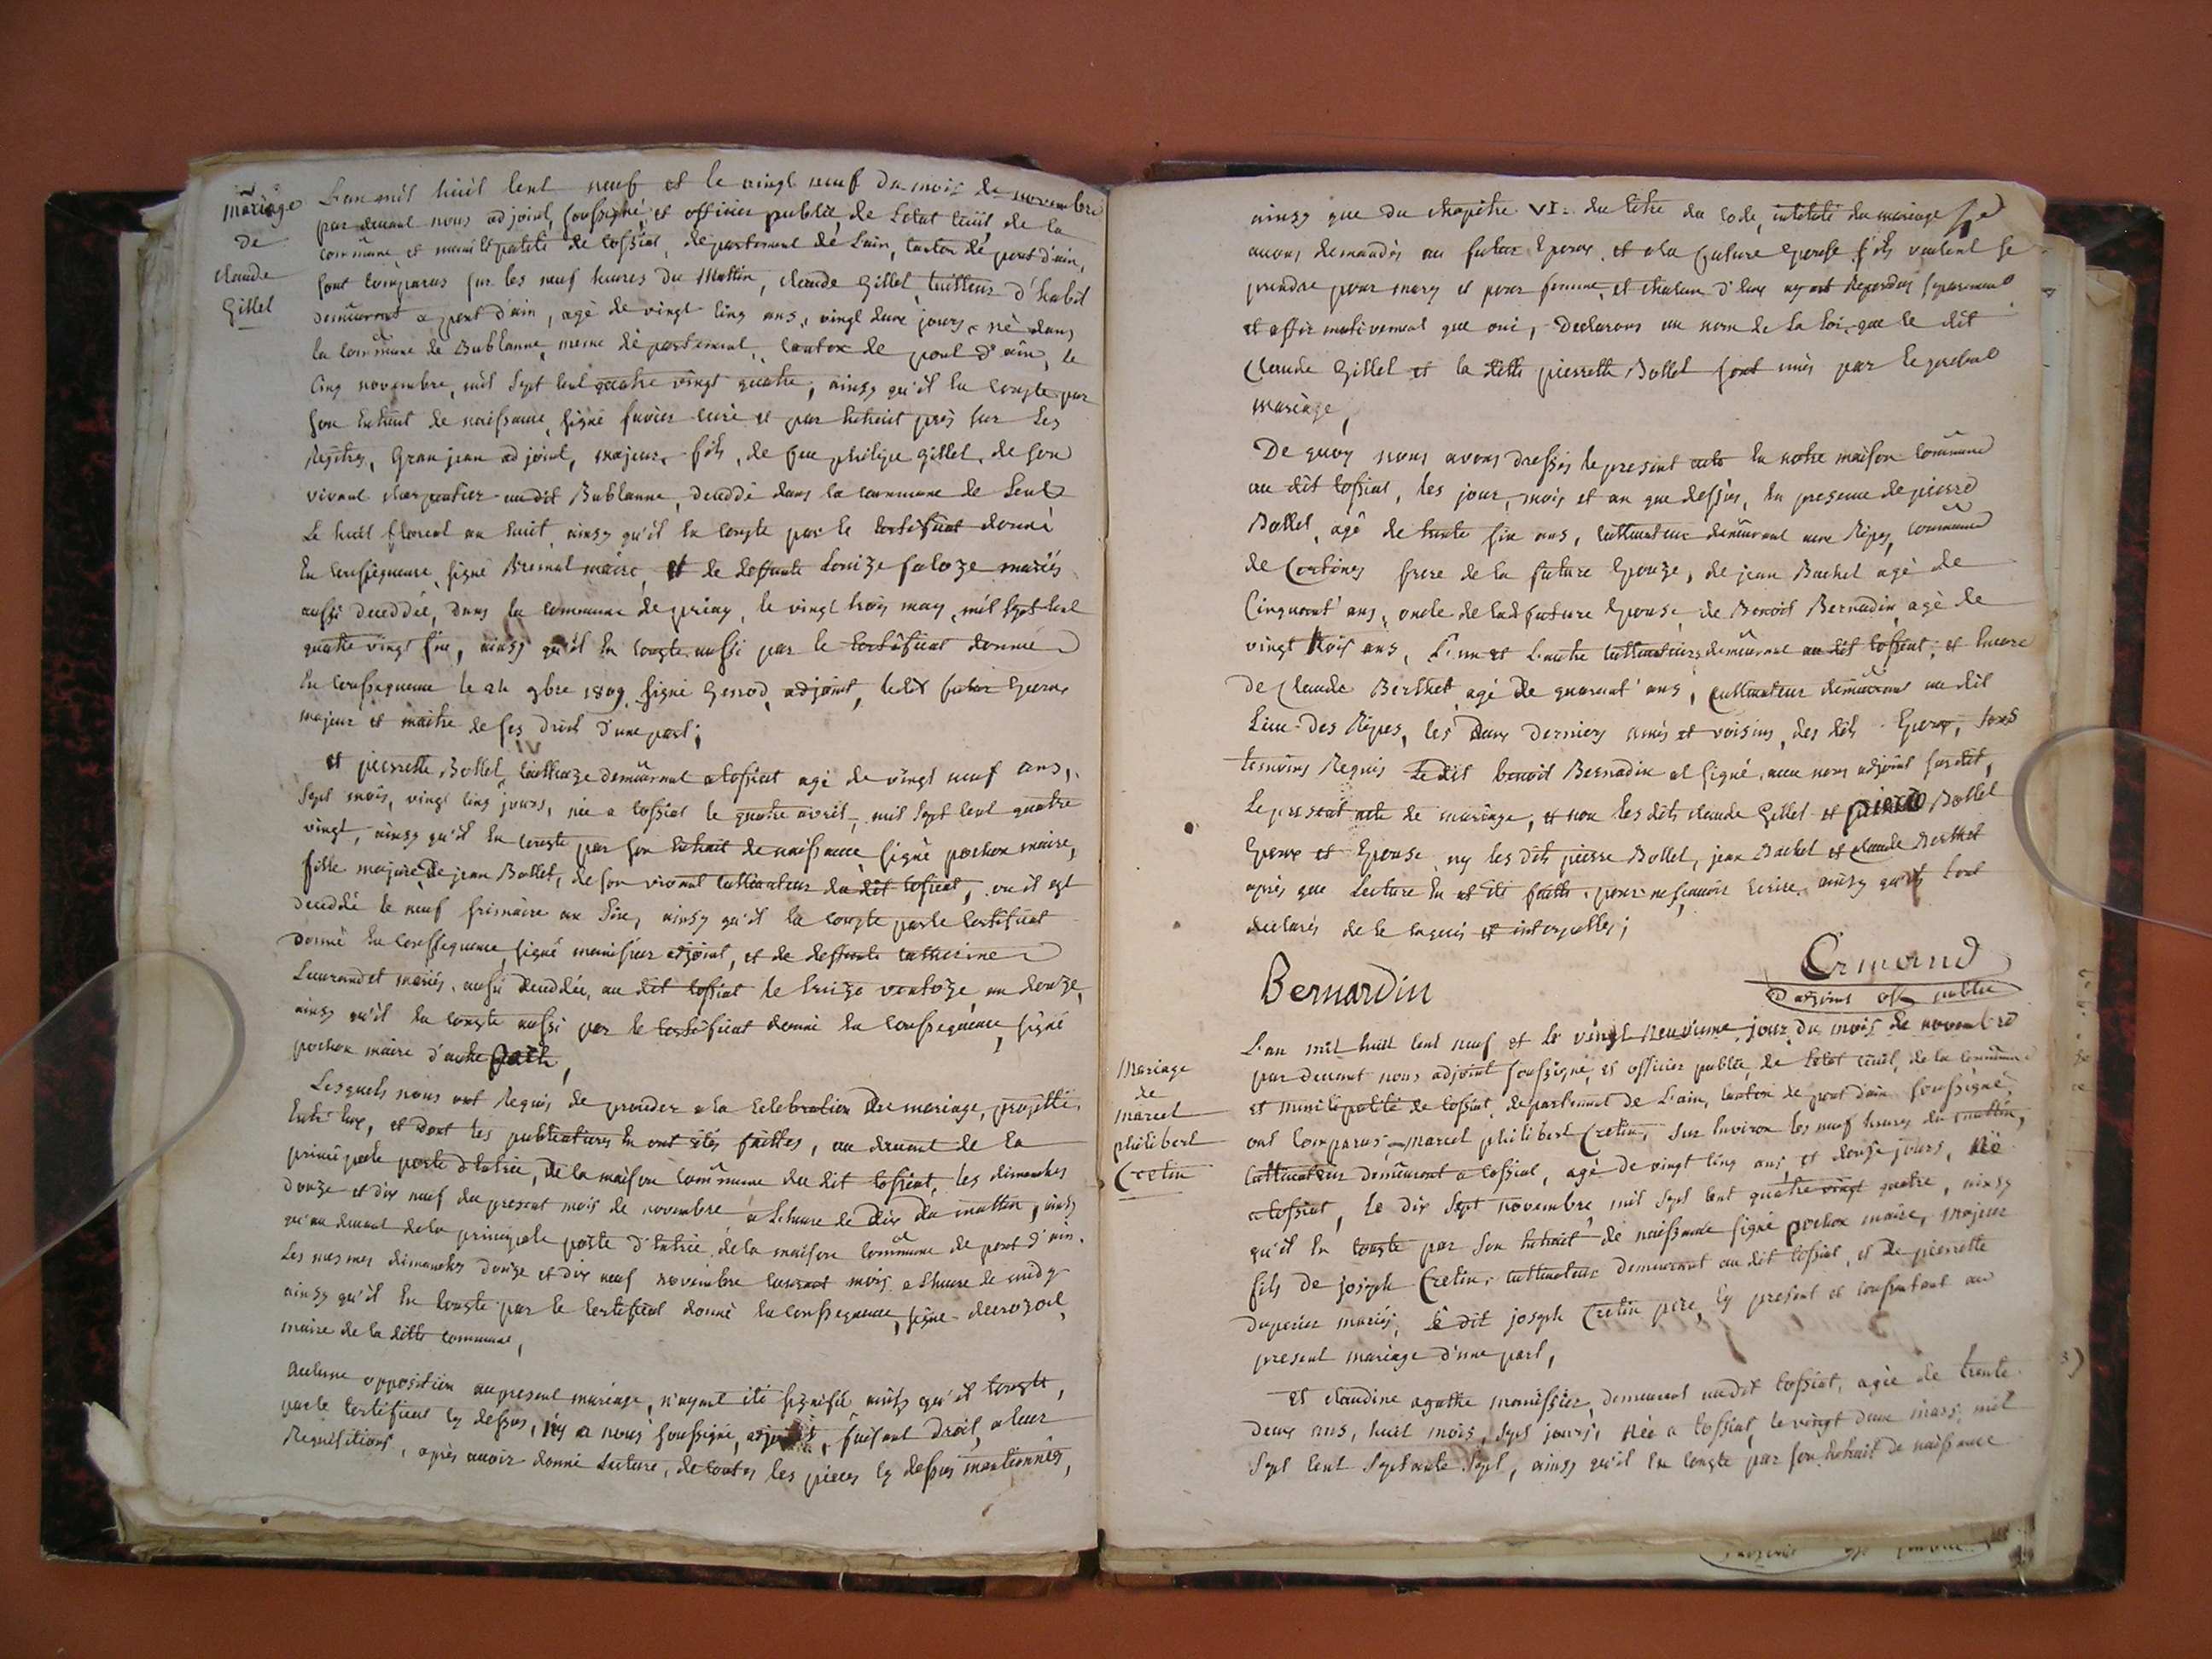 mariage
de
claude
Gillet
L'an mil huit cent neuf et le vingt neuf du mois de novembre
par devant nous adjoint, soussigné, et officier publée de L'etat civil, de la
commune, et municipalité de tossiat, departement de L'ain, canton de pont d'ain,
sont comparus sur les neuf heures du Mattin, claude Gillet, tailleur d'habit
demeurant a pont d'ain, agé de vingt cinq ans, vingt deux jours, né dans
la commune de Bublanne, meme departement, canton de pont d'ain, le
cinq novembre, mil sept cent quatre vingt quatre, ainsy qu'il en conste par
son Extrait de naissance, signé favier curé et par Extrait pris sur Les
Registres, Granjean adjoint, majeur, fils, de feu philipe Gillet, de son
vivant charpentier audit Bublanne, deceddé dans la commune de
Le huit floreal an huit, ainsy qu'il en conste par le certificat donné
En conséquence, signé Bremal maire, et de deffunte Louize faloze mariés
aussi deceddée, dans la commune de priay, le vingt trois may, mil sept cent
quatre vingt six, ainsy qu'il en conste aussi par le certificat donnée
En conssequence le 24 9bre 1809 signé Genod, adjoint, ledit futur Epoux
majeur et maitre de ses droits d'une part;
et pierrette Bollet, cultivatrize demeurant a tossiat agé de vingt neuf ans,
sept mois, vingt cinq jours, née a tossiat le quatre avril, mil sept cent quatre
vingt, ainsy qu'il en conste par son Extrait de naissance, signé pochon maire,
fille majeure de jean Bollet, de son vivant cultivateur du dit tossiat, ou il est
deceddé le neuf frimaire an six, ainsy qu'il en conste par le certificat
donné En conssequence, signé manissier adjoint, et de deffunte catherine
Laurandet mariés, aussi deceddée, au dit tossiat le treize ventoze, an douze,
ainsy qu'il en conste aussi par le certificat donné En conssequence, signé
pochon maire d'autre part,
Lesquels nous ont Requis de proceder a la celebration du mariage, projetté
Entre Eux, et dont les publications En ont étés faittes, au devant de la
principale porte d'Entrée, de la maison commune du dit tossiat, les dimanches
douze et dix neuf du present mois de novembre a L'heure de dix du mattin, ainsy
qu'au devant de la principale porte d'Entrée de la maison commune de pont d'ain.
Les mesmes dimanches douze et dix neuf novembre courant mois a L'heure de midy
ainsy qu'il En conste par le certificat donné En conssequence, signé
maire de la ditte commune,
Aucune opposition au present mariage, n'ayant été signifié ainsy qu'il conste,
par le certificat cy dessus, ny a nous soussigné, adjoint, faisant droit, a leur
Requisitions, après avoir donné Lecture, de toutes les pieces cy dessus mentionnés,
ainsy que du chapitre VI. du titre du code, intitulé du mariage
avons demandés au futur Epoux, et a la future Epouse s'ils veulent se
prendre pour mary et pour femme, et chacun d'Eux ayant Repondus separement
et affirmativement que oui, Declarons au nom de La Loi, que le dit
Claude Gillet et la ditte pierrette Bollet sont unis par le present
mariage,
De quoy nous avons dressés le present acte En notre maison commune
au dit tossiat, les jour, mois et an que dessus, En presence de pierre
Bollet, agé de trente six ans, cultivateur demeurant aux Ripes, commune
de Certines frere de la future Epouze, de jean Bachet agé de
Cinquant'ans, oncle de lad. future Epouse, de Benoit Bernadin, agé de
vingt trois ans, L'un et L'autre cultivateurs demeurant au dit tossiat, et Encore
de Claude Berthet, agé de quarant'ans, cultivateur demeurant au dit
Lieu-Des Ripes, les deux derniers amis et voisins, des dits Epoux, tous
temoins Requis Le dit benoit Bernadin at signé, avec nous adjoint susdit,
Le present acte de mariage, et non les dits claude Gillet et pierrette Bollet
Epoux et Epouse, ny les dits pierre Bollet, jean Bachet et claude Berthet
après que Lecture En at été faitte, pour ne sçavoir Ecrire, ainsy qu'ils L'ont
declarés de ce Enquis et interpelles;
Bernardin
Ermand
adjoint off publée
Mariage
de
marcel
philibert
Cretin
L'an mil huit cent neuf et le vingt neuvieme jour du mois de novembre
par devant nous adjoint soussigné, et officier publée, de L'etat civil, de la commune
et municipalité de tossiat, departement de L'ain, canton de pont d'ain soussigné,
ont comparus, marcel philibert Cretin, sur Environ les neuf heures du mattin,
cultivateur demeurant a tossiat, agé de vingt cinq ans, et douze jours, né
a tossiat, le dix sept novembre mil sept cent quatre vingt quatre, ainsy
qu'il En conste par son Extrait de naissance signé pochon maire, majeur
fils de joseph Cretin, cultivateur demeurant au dit tossiat, et de pierrette
duperier mariés, le dit joseph Cretin pere, cy present et consentant au
present mariage d'une part,
Et claudine agathe manissier, demeurant audit tossiat, agée de trente
deux ans, huit mois, sept jours, née a tossiat, le vingt deux mars, mil
sept cent septante sept, ainsy qu'il En conste par son Extrait de naissance